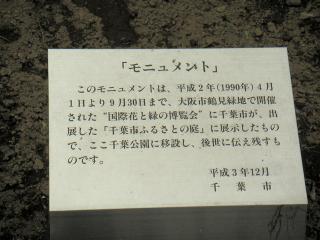 「モニュメント」
このモニュメントは、平成2年(1990年) 4月
1日より9月30日まで、大阪市鶴見緑地で開催
された“国際花と緑の博覧会”に千葉市が、出
展した「千葉市ふるさとの庭」に展示したもの
で、ここ千葉公園に移設し、後世に伝え残すも
のです。
平成3年12月
千葉市